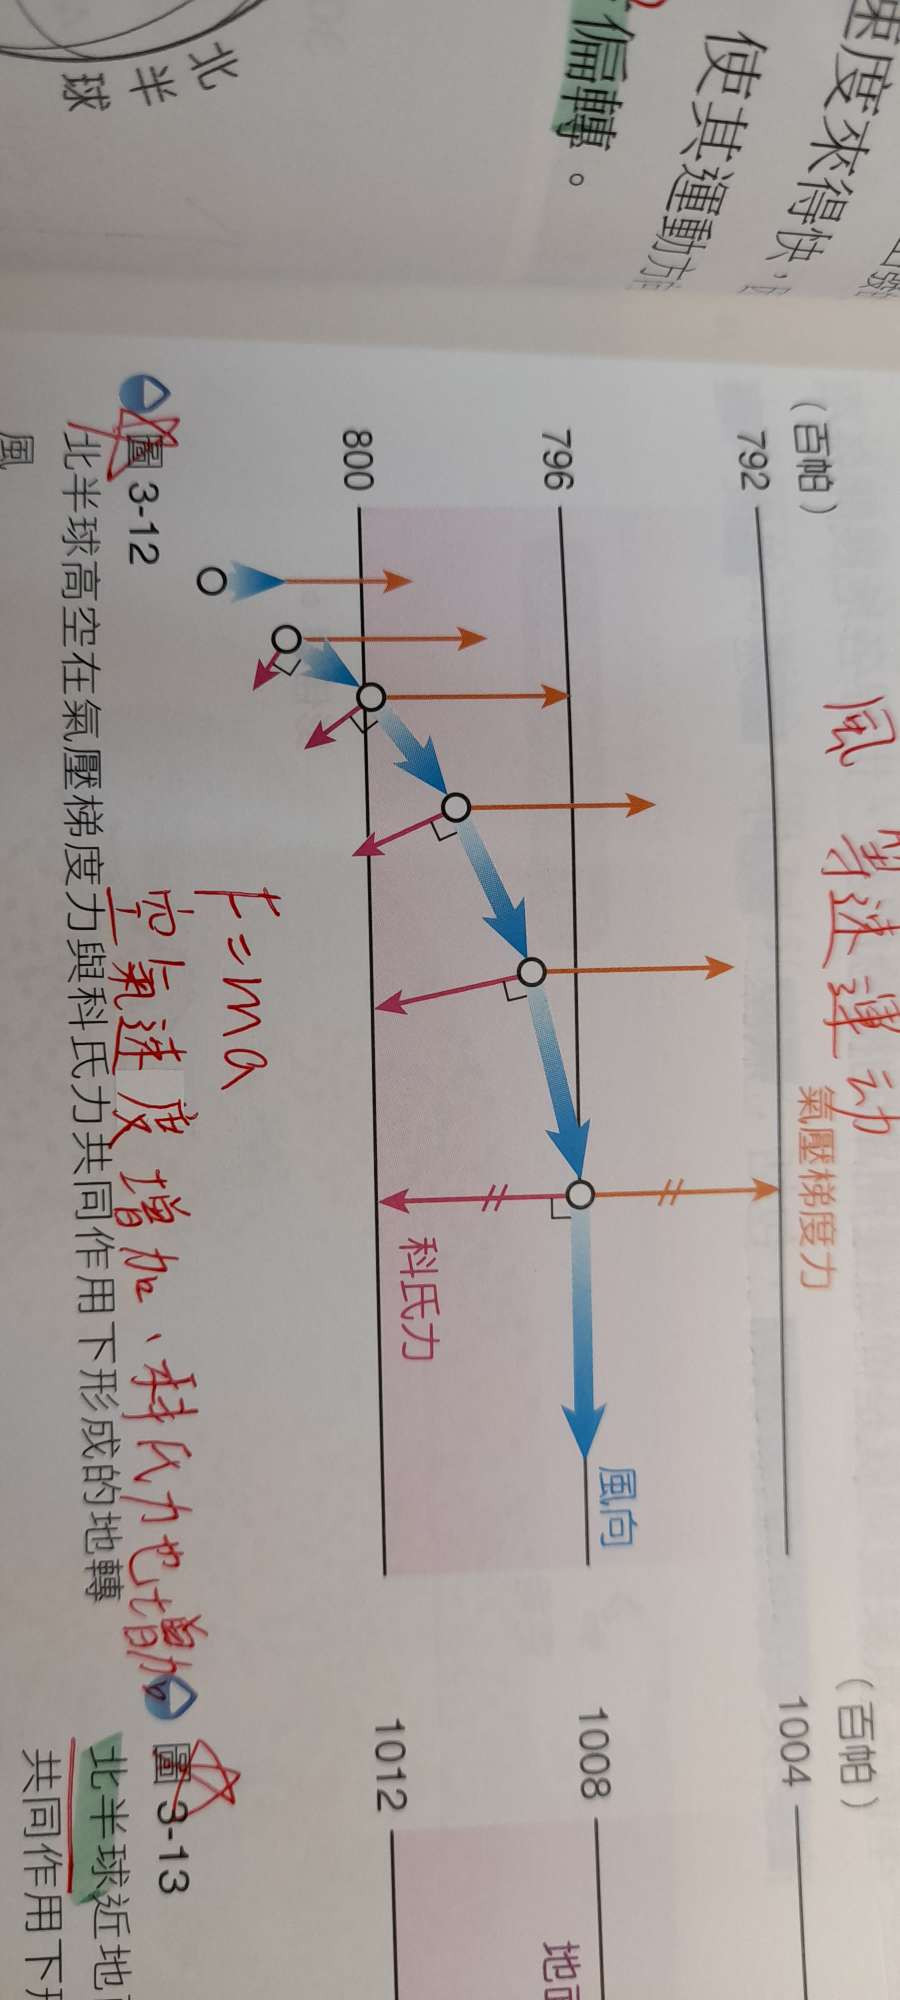 速度來得快，
使其運動方
偏轉。
北
半
球
（百帕）
792
796
800
風 等速運动
氣壓梯度力
科氏力
風向
F=ma
空氣速度增加、科氏力也增加
圖 3-12
北半球高空在氣壓梯度力與科氏力共同作用下形成的地轉
風
（百帕）
1004
1008
1012
地面
圖 3-13
北半球近地
共同作用下